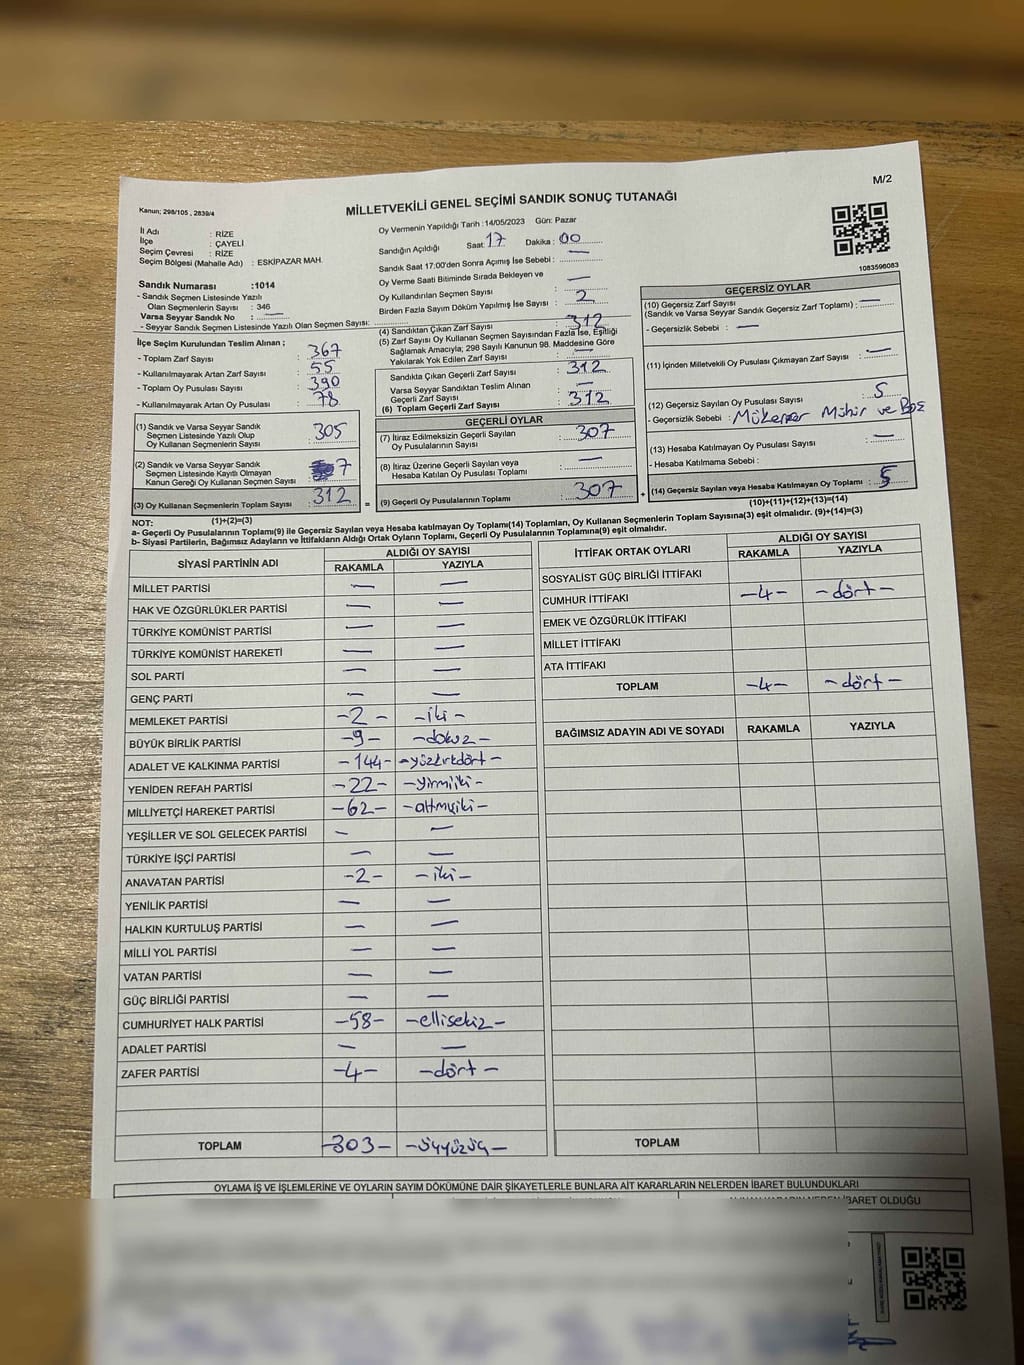 M/2
Kanun; 298/105 , 2839/4
MİLLETVEKİLİ GENEL SEÇİMİ SANDIK SONUÇ TUTANAĞI
İl Adı : RİZE
İlçe : ÇAYELİ
Seçim Çevresi : RİZE
Seçim Bölgesi (Mahalle Adı) : ESKİPAZAR MAH.
Sandık Numarası :1014
- Sandık Seçmen Listesinde Yazılı
Olan Seçmenlerin Sayısı : 346
Varsa Seyyar Sandık No : —
- Seyyar Sandık Seçmen Listesinde Yazılı Olan Seçmen Sayısı:
İlçe Seçim Kurulundan Teslim Alınan ;
- Toplam Zarf Sayısı : 367
- Kullanılmayarak Artan Zarf Sayısı : 55
- Toplam Oy Pusulası Sayısı : 390
- Kullanılmayarak Artan Oy Pusulası : 78
(1) Sandık ve Varsa Seyyar Sandık
Seçmen Listesinde Yazılı Olup
Oy Kullanan Seçmenlerin Sayısı : 305
(2) Sandık ve Varsa Seyyar Sandık
Seçmen Listesinde Kayıtlı Olmayan
Kanun Gereği Oy Kullanan Seçmen Sayısı : 7
(3) Oy Kullanan Seçmenlerin Toplam Sayısı : 312 =
(1)+(2)=(3)
Oy Vermenin Yapıldığı Tarih :14/05/2023 Gün: Pazar
Sandığın Açıldığı Saat 17 Dakika : 00
Sandık Saat 17:00'den Sonra Açımış İse Sebebi : —
Oy Verme Saati Bitiminde Sırada Bekleyen ve
Oy Kullandırılan Seçmen Sayısı : —
Birden Fazla Sayım Döküm Yapılmış İse Sayısı : 2
(4) Sandıktan Çıkan Zarf Sayısı : 312
(5) Zarf Sayısı Oy Kullanan Seçmen Sayısından Fazla İse, Eşitliği
Sağlamak Amacıyla; 298 Sayılı Kanunun 98. Maddesine Göre
Yakılarak Yok Edilen Zarf Sayısı : —
Sandıkta Çıkan Geçerli Zarf Sayısı : 312
Varsa Seyyar Sandıktan Teslim Alınan
Geçerli Zarf Sayısı : —
(6) Toplam Geçerli Zarf Sayısı : 312
GEÇERLİ OYLAR
(7) İtiraz Edilmeksizin Geçerli Sayılan
Oy Pusulasının Sayısı : 307
(8) İtiraz Üzerine Geçerli Sayılan veya
Hesaba Katılan Oy Pusulası Toplamı : —
(9) Geçerli Oy Pusulalarının Toplamı : 307 +
1083596083
GEÇERSİZ OYLAR
(10) Geçersiz Zarf Sayısı
(Sandık ve Varsa Seyyar Sandık Geçersiz Zarf Toplamı) : —
- Geçersizlik Sebebi : —
(11) İçinden Milletvekili Oy Pusulası Çıkmayan Zarf Sayısı : —
(12) Geçersiz Sayılan Oy Pusulası Sayısı : 5
- Geçersizlik Sebebi : Mükerrer Mühür ve Boş
(13) Hesaba Katılmayan Oy Pusulası Sayısı : —
- Hesaba Katılmama Sebebi :
(14) Geçersiz Sayılan veya Hesaba Katılmayan Oy Toplamı : 5
(10)+(11)+(12)+(13)=(14)
NOT:
a- Geçerli Oy Pusulalarının Toplamı(9) ile Geçersiz Sayılan veya Hesaba katılmayan Oy Toplamı(14) Toplamları, Oy Kullanan Seçmenlerin Toplam Sayısına(3) eşit olmalıdır. (9)+(14)=(3)
b- Siyasi Partilerin, Bağımsız Adayların ve İttifakların Aldığı Ortak Oyların Toplamı, Geçerli Oy Pusulalarının Toplamına(9) eşit olmalıdır.
SİYASİ PARTİNİN ADI ALDIĞI OY SAYISI
RAKAMLA YAZIYLA
MİLLET PARTİSİ — —
HAK VE ÖZGÜRLÜKLER PARTİSİ — —
TÜRKİYE KOMÜNİST PARTİSİ — —
TÜRKİYE KOMÜNİST HAREKETİ — —
SOL PARTİ — —
GENÇ PARTİ — —
MEMLEKET PARTİSİ -2- -iki-
BÜYÜK BİRLİK PARTİSİ -9- -dokuz-
ADALET VE KALKINMA PARTİSİ -144- -yüzkırkdört-
YENİDEN REFAH PARTİSİ -22- -yirmiiki-
MİLLİYETÇİ HAREKET PARTİSİ -62- -altmışiki-
YEŞİLLER VE SOL GELECEK PARTİSİ — —
TÜRKİYE İŞÇİ PARTİSİ — —
ANAVATAN PARTİSİ -2- -iki-
YENİLİK PARTİSİ — —
HALKIN KURTULUŞ PARTİSİ — —
MİLLİ YOL PARTİSİ — —
VATAN PARTİSİ — —
GÜÇ BİRLİĞİ PARTİSİ — —
CUMHURİYET HALK PARTİSİ -58- -ellisekiz-
ADALET PARTİSİ — —
ZAFER PARTİSİ -4- -dört-
TOPLAM -303- -üçyüzüç-
İTTİFAK ORTAK OYLARI ALDIĞI OY SAYISI
RAKAMLA YAZIYLA
SOSYALİST GÜÇ BİRLİĞİ İTTİFAKI
CUMHUR İTTİFAKI -4- -dört-
EMEK VE ÖZGÜRLÜK İTTİFAKI
MİLLET İTTİFAKI
ATA İTTİFAKI
TOPLAM -4- -dört-
BAĞIMSIZ ADAYIN ADI VE SOYADI RAKAMLA YAZIYLA
TOPLAM
OYLAMA İŞ VE İŞLEMLERİNE VE OYLARIN SAYIM DÖKÜMÜNE DAİR ŞİKAYETLERLE BUNLARA AİT KARARLARIN NELERDEN İBARET BULUNDUKLARI
İBARET OLDUĞU